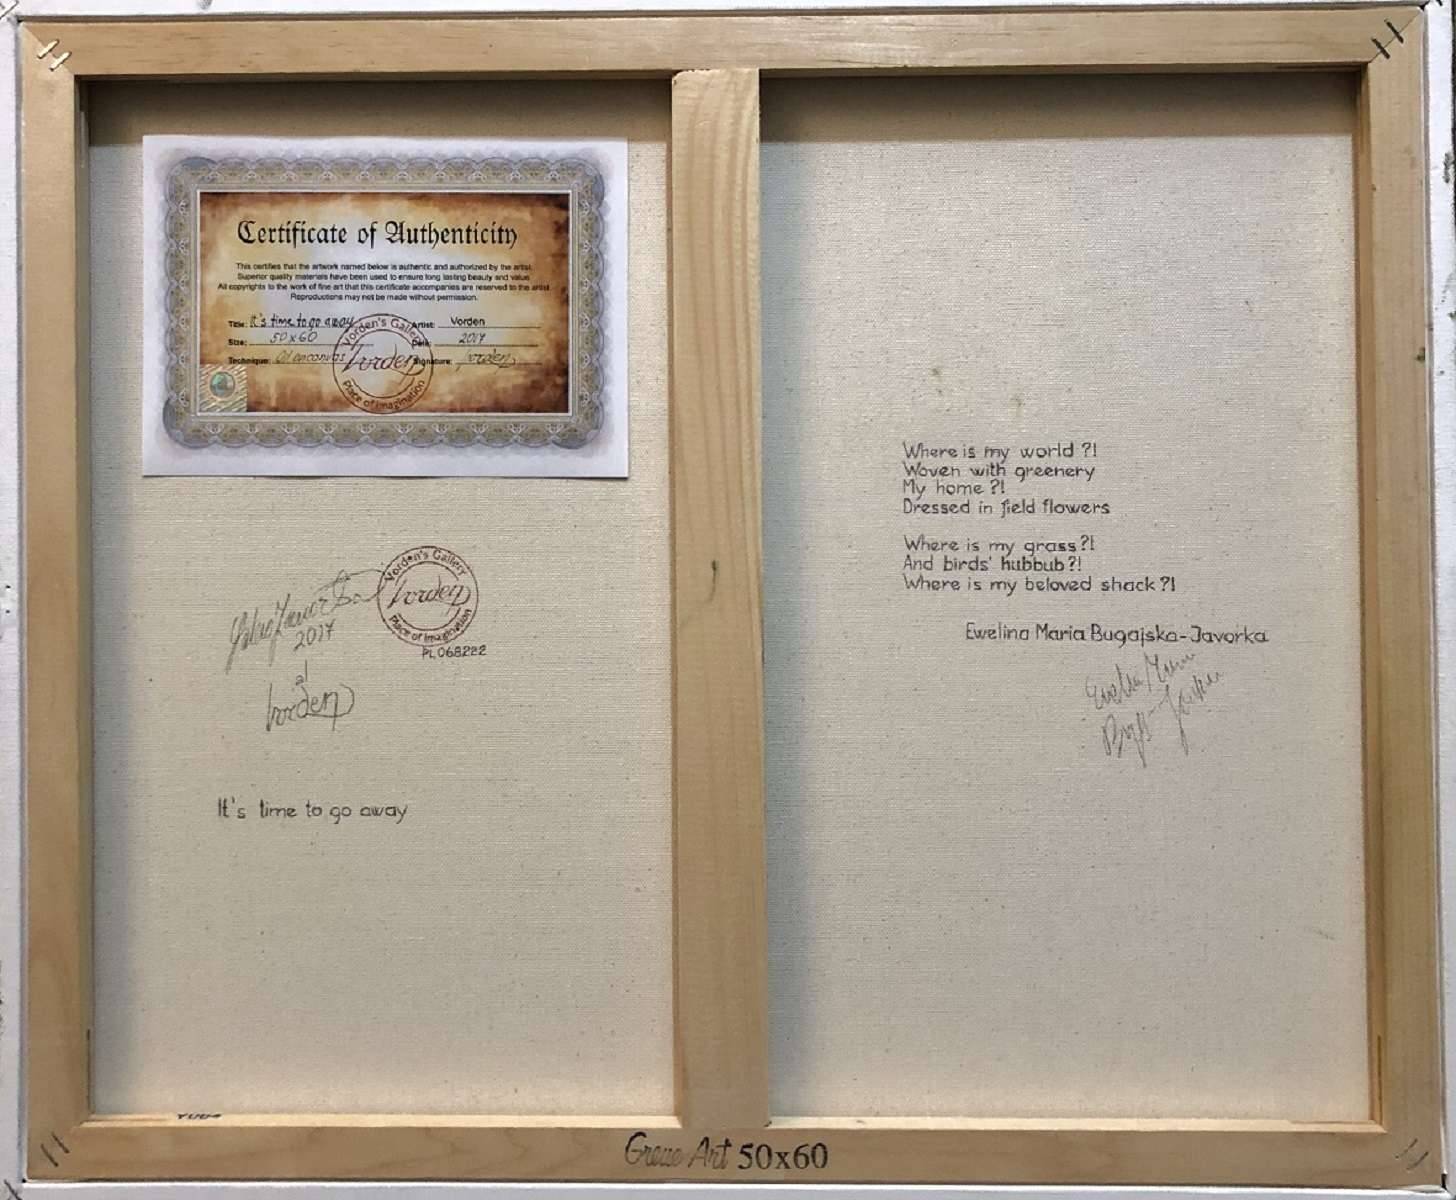 Certificate of Authenticity
This certifies that the artwork named below is authentic and authorized by the artist.
Superior quality materials have been used to ensure long lasting beauty and value.
All copyrights to the work of fine art that this certificate accompanies are reserved to the artist.
Reproductions may not be made without permission.
Title: It's time to go away Artist: Vorden
Size: 50x60 Date: 2017
Technique: Oil on canvas Signature: Vorden
Vorden's Gallery
Vorden
Place of Imagination
Vorden's Gallery
Vorden
Place of Imagination
PL068222
2017
al
Vorden
It's time to go away
Where is my world ?!
Woven with greenery
My home ?!
Dressed in field flowers
Where is my grass?!
And birds' hubbub?!
Where is my beloved shack?!
Ewelina Maria Bugajska-Javorka
50x60